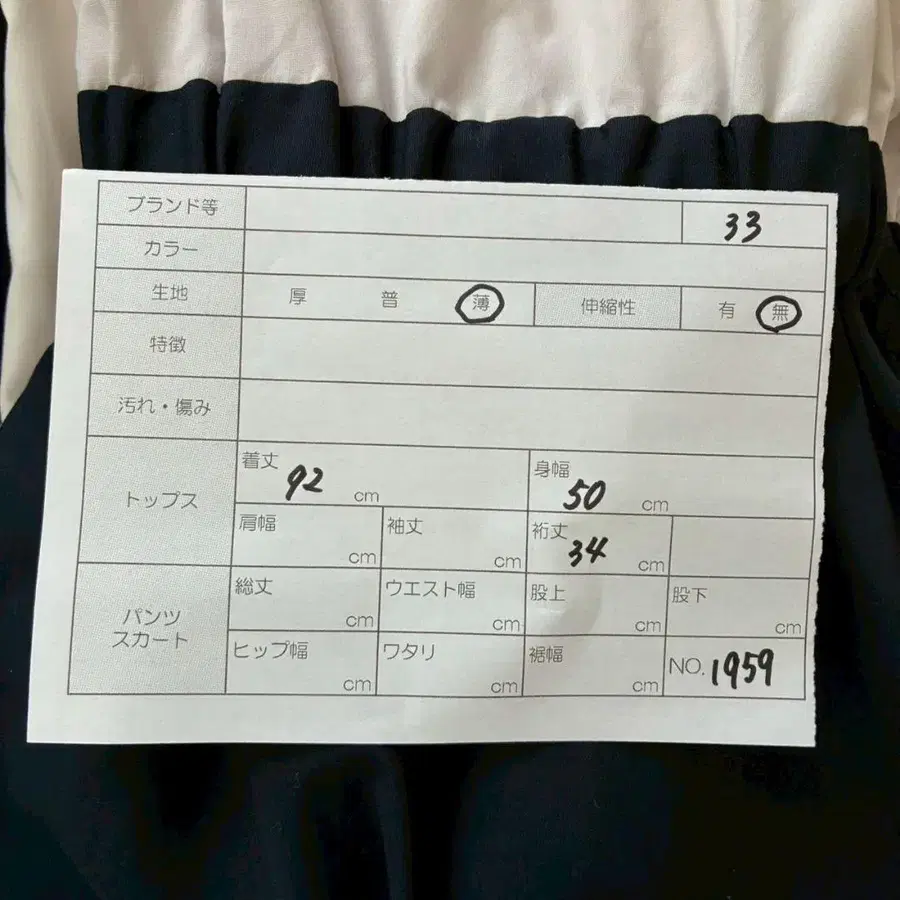 ブランド等 33
カラー
生地 厚 普 薄 伸縮性 有 無
特徴
汚れ・傷み
トップス
着丈 92 cm 身幅 50 cm
肩幅 cm 袖丈 cm 裄丈 34 cm
パンツ
スカート
総丈 cm ウエスト幅 cm 股上 cm 股下 cm
ヒップ幅 cm ワタリ cm 裾幅 cm NO. 1959